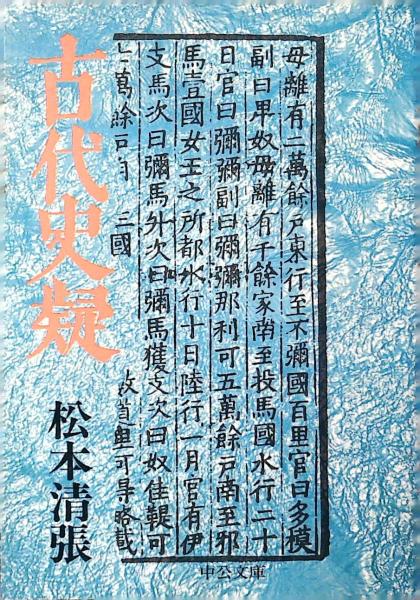 古代史疑
松本清張
毋離有二萬餘戸東行至不彌國百里官曰多模
副曰卑奴毋離有千餘家南至投馬國水行二十
日官曰彌彌副曰彌彌那利可五萬餘戸南至邪
馬壹國女王之所都水行十日陸行一月官有伊
支馬次曰彌馬升次曰彌馬獲支次曰奴佳鞮可
七萬餘戸 國 道里可 略載
中公文庫